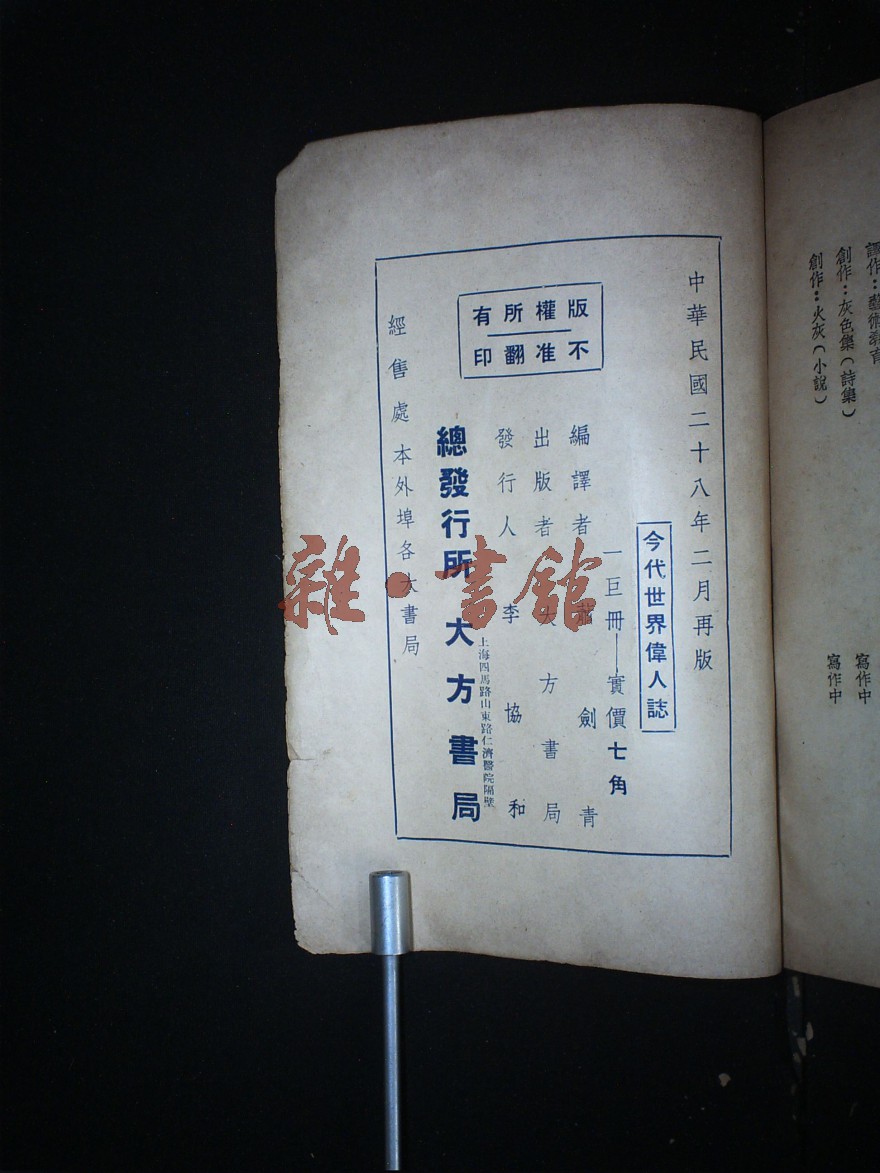 譯作：藝術教育
創作：灰色集（詩集） 寫作中
創作：火灰（小說） 寫作中
中華民國二十八年二月再版
今代世界偉人誌
一巨冊——實價七角
版權所有
不准翻印
編譯者 蕭劍青
出版者 大方書局
發行人 李協和
總發行所 大方書局
上海四馬路山東路仁濟醫院隔壁
經售處 本外埠各大書局
雜·書館